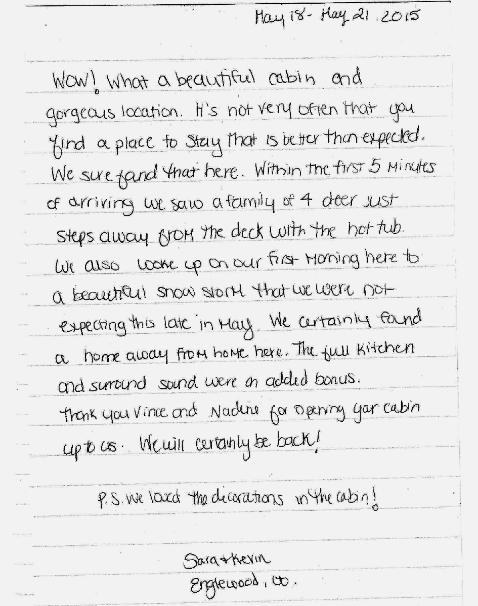 May 18 - May 21. 2015
Wow! What a beautiful cabin and
gorgeous location. It's not very often that you
find a place to stay that is better than expected.
We sure found that here. Within the first 5 minutes
of arriving we saw a family of 4 deer just
steps away from the deck with the hot tub.
We also woke up on our first morning here to
a beautiful snow storm that we were not
expecting this late in May. We certainly found
a home away from home here. The full kitchen
and surround sound were an added bonus.
Thank you Vince and Nadine for opening your cabin
up to us. We will certainly be back!
P.S. We loved the decorations in the cabin!
Sara + Kevin
Englewood, CO.